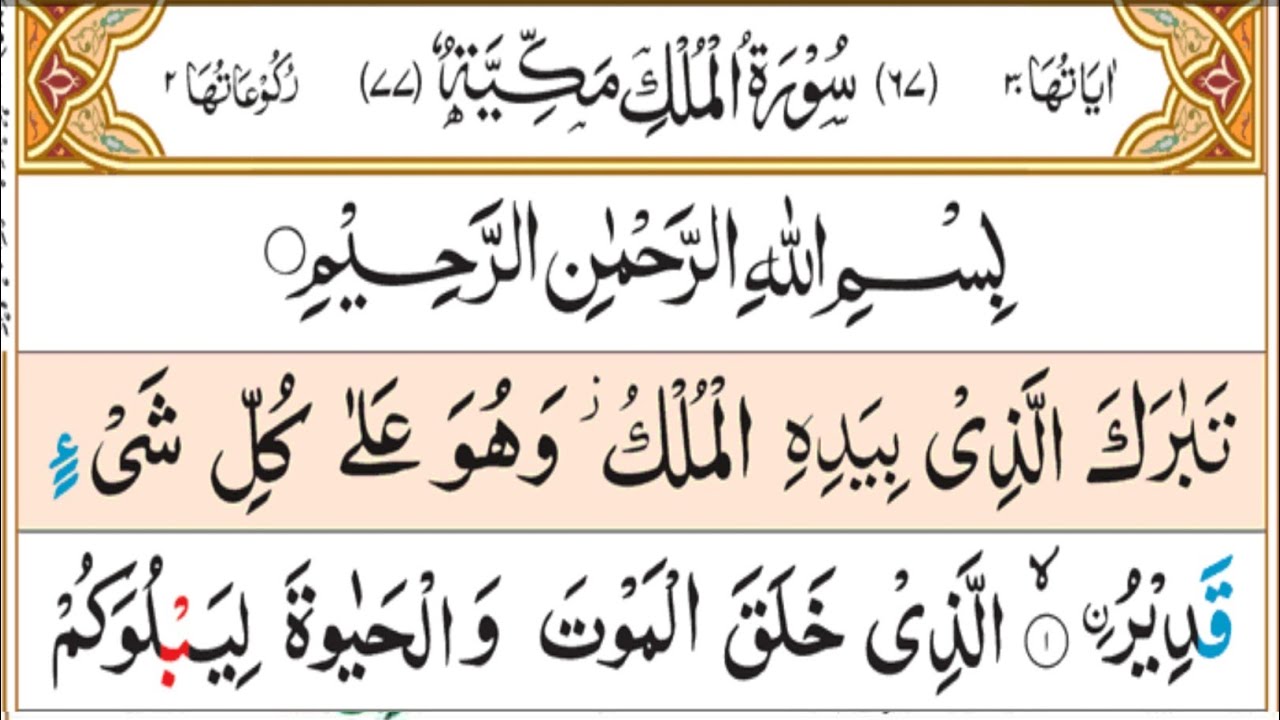 اٰيَاتُهَا ٣٠ (٦٧) سُوْرَةُ الْمُلْكِ مَكِّيَّةٌ (٧٧) رُكُوْعَاتُهَا ٢
بِسْمِ اللّٰهِ الرَّحْمٰنِ الرَّحِيْمِ ○
تَبٰرَكَ الَّذِىْ بِيَدِهِ الْمُلْكُ ز وَهُوَ عَلٰى كُلِّ شَىْءٍ
قَدِيْرُ ۨ ۙ ١ الَّذِىْ خَلَقَ الْمَوْتَ وَالْحَيٰوةَ لِيَبْلُوَكُمْ